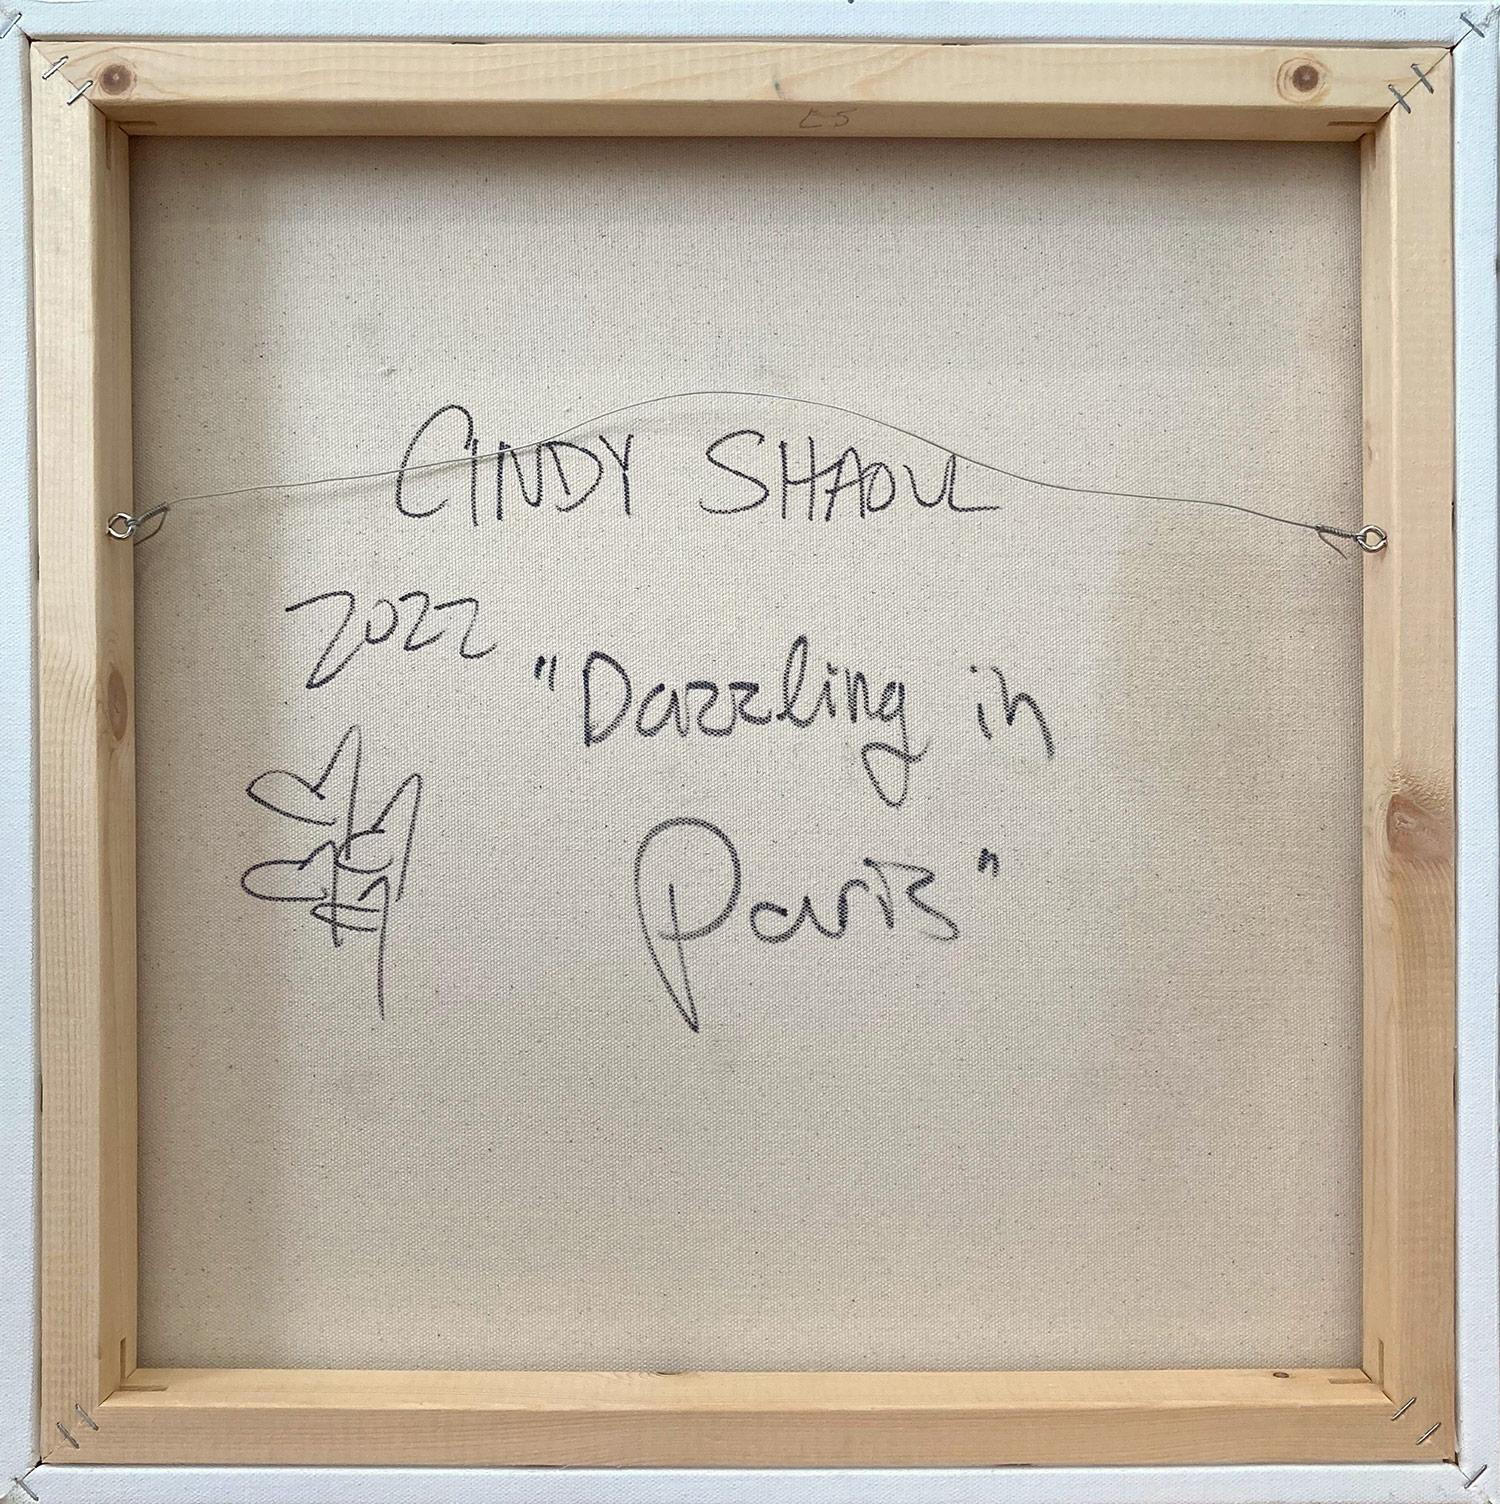 ES
CINDY SHAOUL
2022
"Dazzling in
Paris"